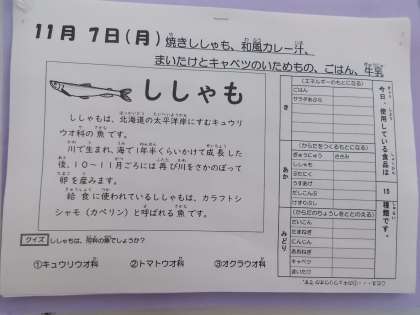 11月 7日(月) 焼きししゃも、和風カレー汁、
まいたけとキャベツのいためもの、ごはん、牛乳
ししゃも
ししゃもは、北海道の太平洋岸にすむキュウリ
ウオ科の魚です。
川で生まれ、海で1年半くらいかけて成長した
後、10~11月ごろには再び川をさかのぼって
卵を産みます。
給食に使われているししゃもは、カラフトシ
シャモ(カペリン)と呼ばれる魚です。
クイズ ししゃもは、何科の魚でしょうか?
①キュウリウオ科 ②トマトウオ科 ③オクラウオ科
今日、使用している食品は 15 種類です。
き
(エネルギーのもとになる)
ごはん
サラダあぶら
あか
(からだをつくるもとになる)
ぎゅうにゅう
ししゃも
ぶたにく
うすあげ
だしこんぶ
けずりぶし
みどり
(からだのちょうしをととのえる)
だいこん
たまねぎ
にんじん
あおねぎ
キャベツ
まいたけ